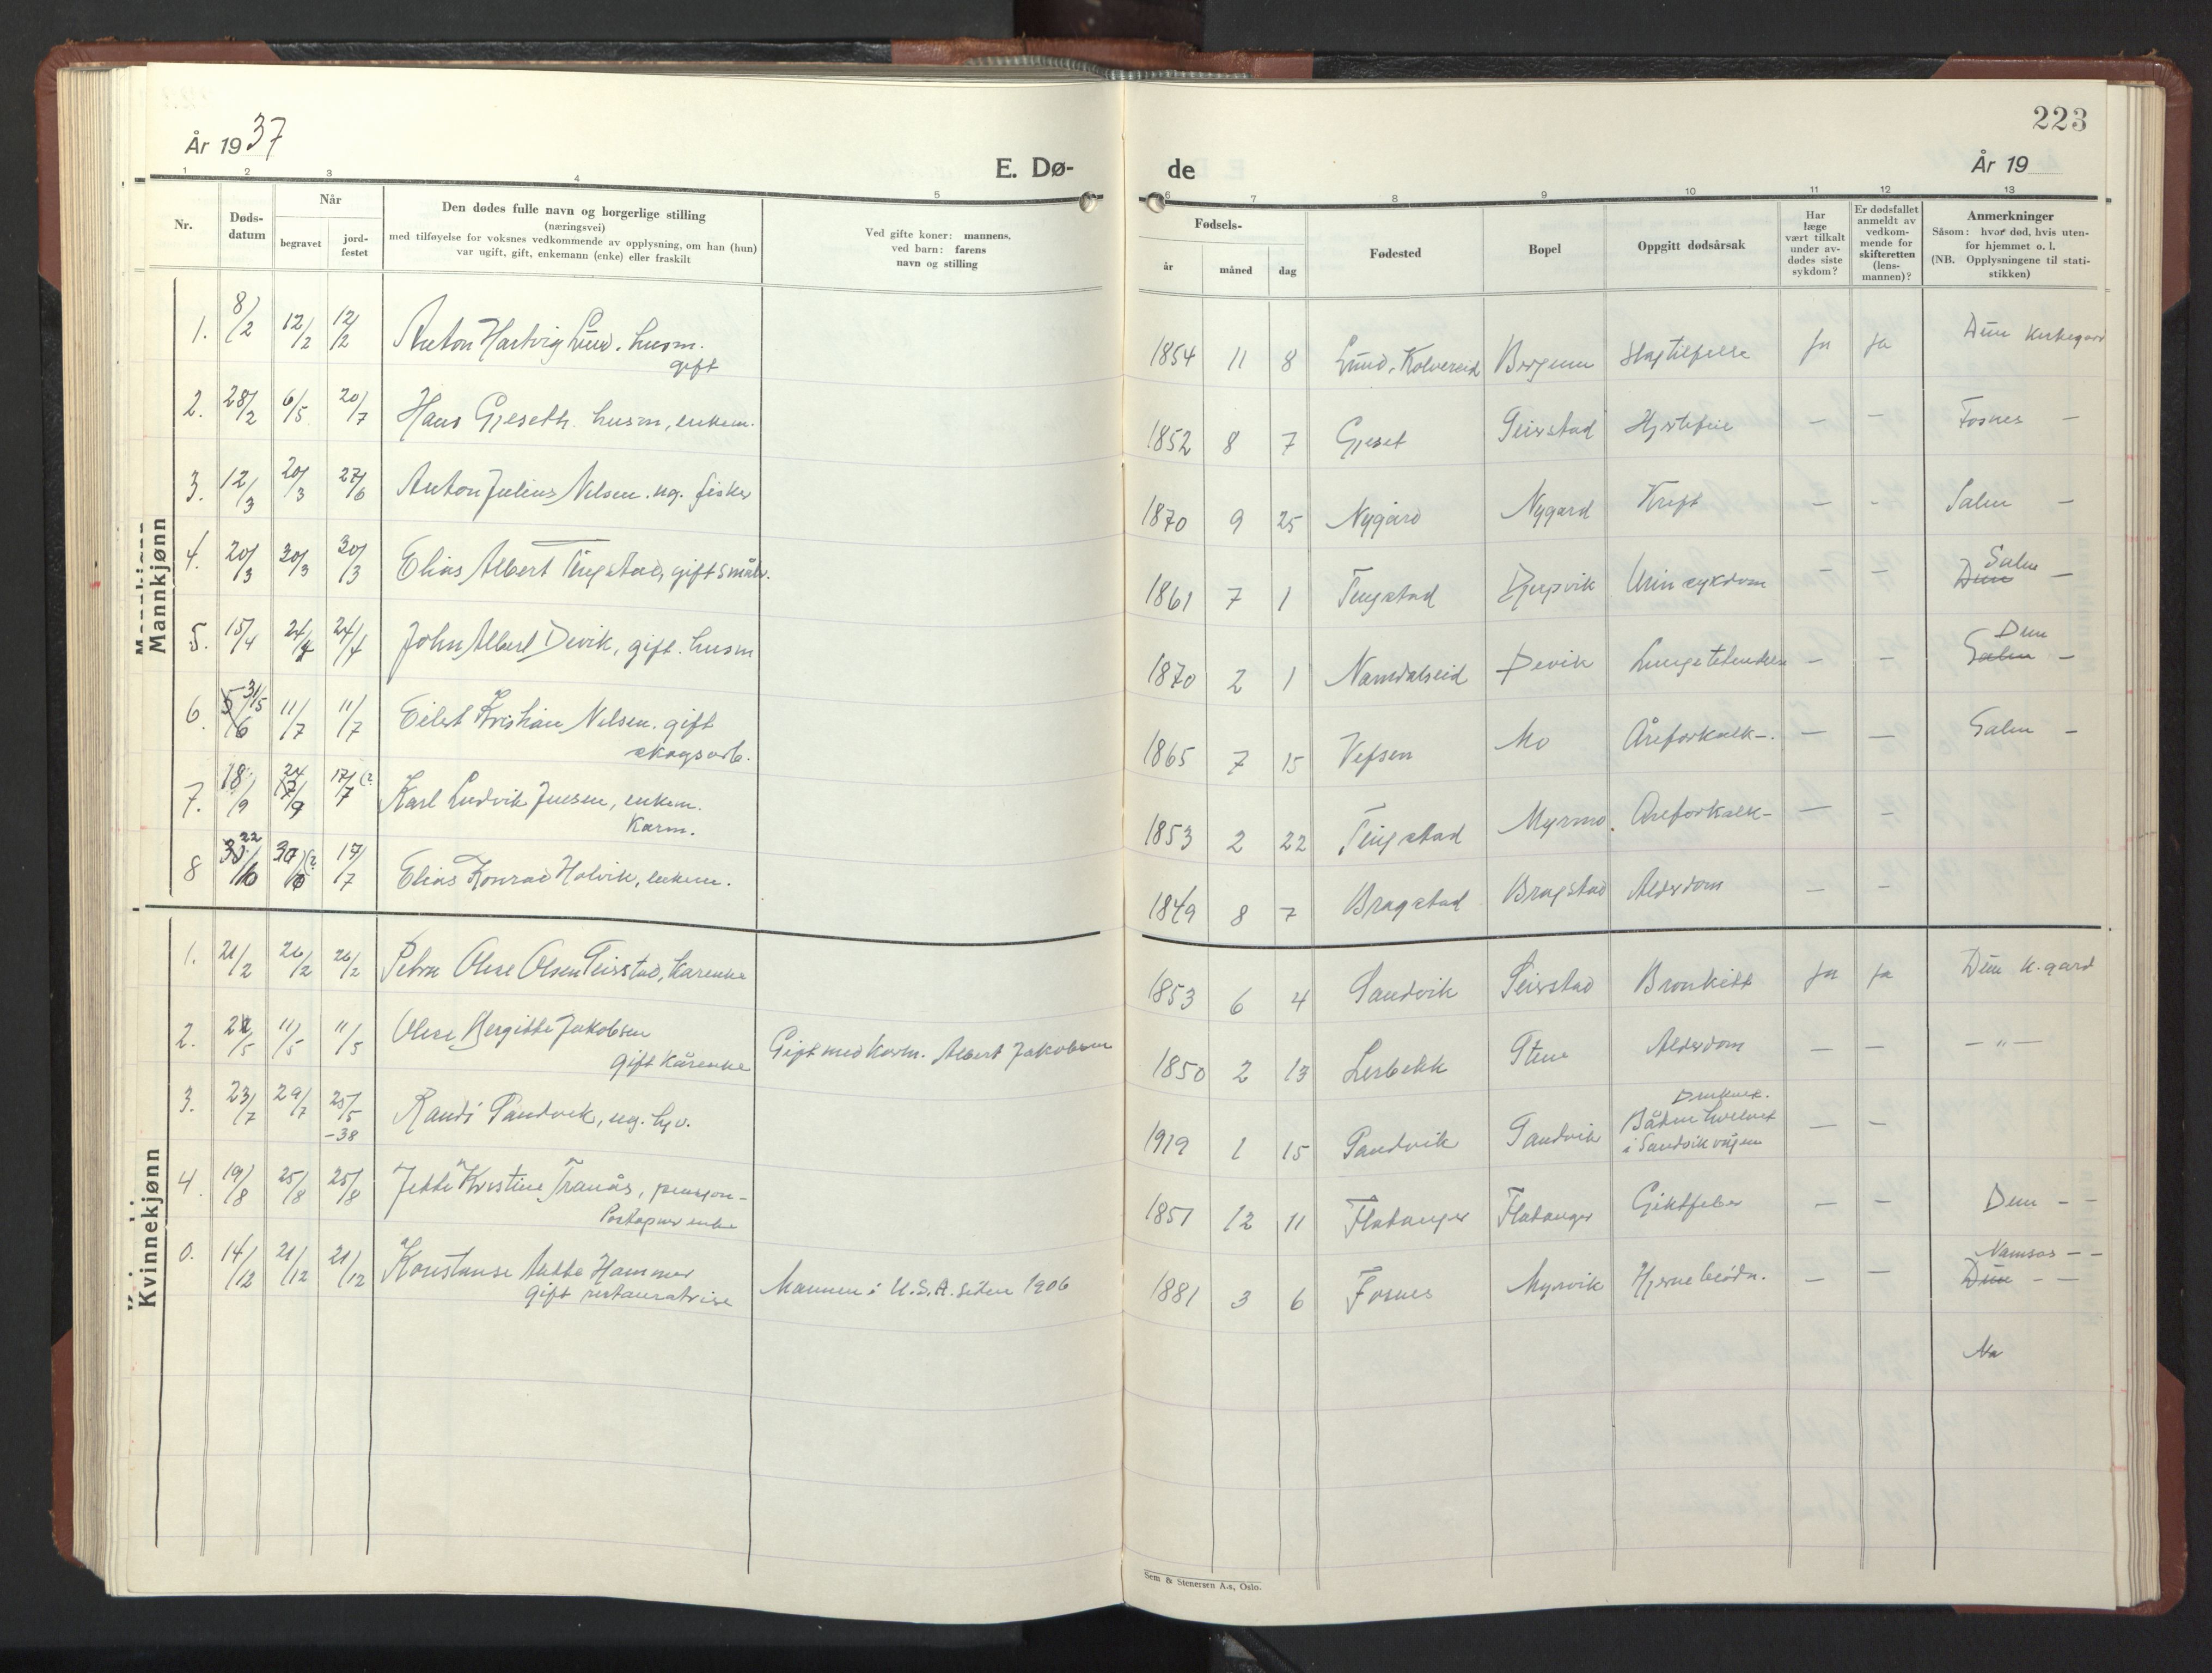 År 1937
E. Dø-
1 2 3 4 5
Nr.
Døds-
datum
Når
begravet
jord-
festet
Den dødes fulle navn og borgerlige stilling
(næringsvei)
med tilføyelse for voksnes vedkommende av opplysning, om han (hun)
var ugift, gift, enkemann (enke) eller fraskilt
Ved gifte koner: mannens,
ved barn: farens
navn og stilling
Mannkjønn
1. 8/2 12/2 12/2 Anton Hartvig Lund. husm.
gift
2. 28/2 6/5 20/7 Hans Gjeseth husm, enkem.
3. 12/3 20/3 27/6 Anton Julius Nilsen. ug. fisker
4. 20/3 30/3 30/3 Elias Albert Tingstad, gift småbr.
5. 15/4 24/4 24/4 John Albert Devik, gift. husm
6. 31/5 11/7 11/7 Eilert Kristian Nilsen. gift
skogsarb.
7. 18/9 24/9 17/7 (? Karl Ludvik Juesen, enkem.
Karm.
8 22/6 30 (? 17/7 Elias Konrad Holvik, enkem.
Kvinnekjønn
1. 21/2 26/2 26/2 Petra Olise Olsen Seirstad, kårenke
2. 2/5 11/5 11/5 Olise Bergitte Jakobsen
gift kårenke Gift med karm. Albert Jakobsen
3. 23/7 29/7 25/5
-38 Randi Sandvik, ug. hjv.
4. 19/8 25/8 25/8 Jette Kristine Tranås, pensjon-
Poståpner enke
0. 14/12 21/12 21/12 Konstanse Hammer
gift restauratrise Mannen i U.S.A. siden 1906
223
de
År 19
6 7 8 9 10 11 12 13
Fødsels-
år måned dag
Fødested
Bopel
Oppgitt dødsårsak
Har
læge
vært tilkalt
under av-
dødes siste
sykdom?
Er dødsfallet
anmeldt av
vedkom-
mende for
skifteretten
(lens-
mannen)?
Anmerkninger
Såsom: hvor død, hvis uten-
for hjemmet o. l.
(NB. Opplysningene til stati-
stikken)
1854 11 8 Lund, Kolvereid Slagtilfelle ja ja Dun kirkegard
1852 8 7 Gjeset Seierstad Hjertefeil — — Fosnes —
1870 9 25 Nygård Nygård Kreft — — Salen —
1861 7 1 Tingstad Djupvik Urinsykdom — — Salen
Dun —
1870 2 1 Namdalseid Devik Lungebetendelse — — Dun
Salen —
1865 7 15 Vefsen Mo Åreforkalk-. — — Salen —
1853 2 22 Tingstad Myrmo. Åreforkalk- — —
1849 8 7 Bragstad Bragstad Alderdom — —
1853 6 4 Sandvik Seierstad Bronkitt ja ja Dun k.gard
1850 2 13 Lerbekk Stene Alderdom — — — " —
1919 1 15 Sandvik Sandvik Druknet.
Båten hvelvet
i Sandvikvågen — —
1851 12 11 Flatanger Flatanger Giktfeber — — Dun — —
1881 3 6 Fosnes Myrvik Hjerneblødn. — — Namsos — —
Dun — —
Na
Sem & Stenersen A.s, Oslo.